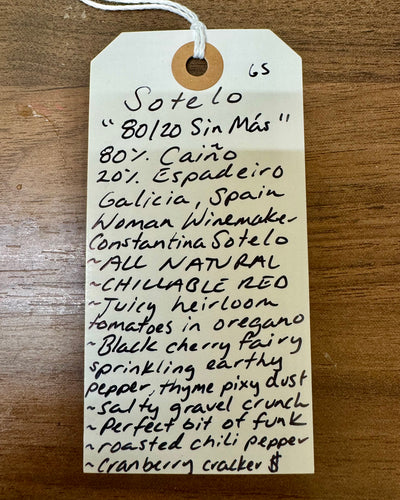 GS
Sotelo
"80/20 Sin Más"
80% Caiño
20% Espadeiro
Galicia, Spain
Woman Winemaker
Constantina Sotelo
~ALL NATURAL
~CHILLABLE RED
~Juicy heirloom
tomatoes in oregano
~Black cherry fairy
sprinkling earthy
pepper, thyme pixy dust
~salty gravel crunch
~Perfect bit of funk
~roasted chili pepper
~Cranberry cracker $